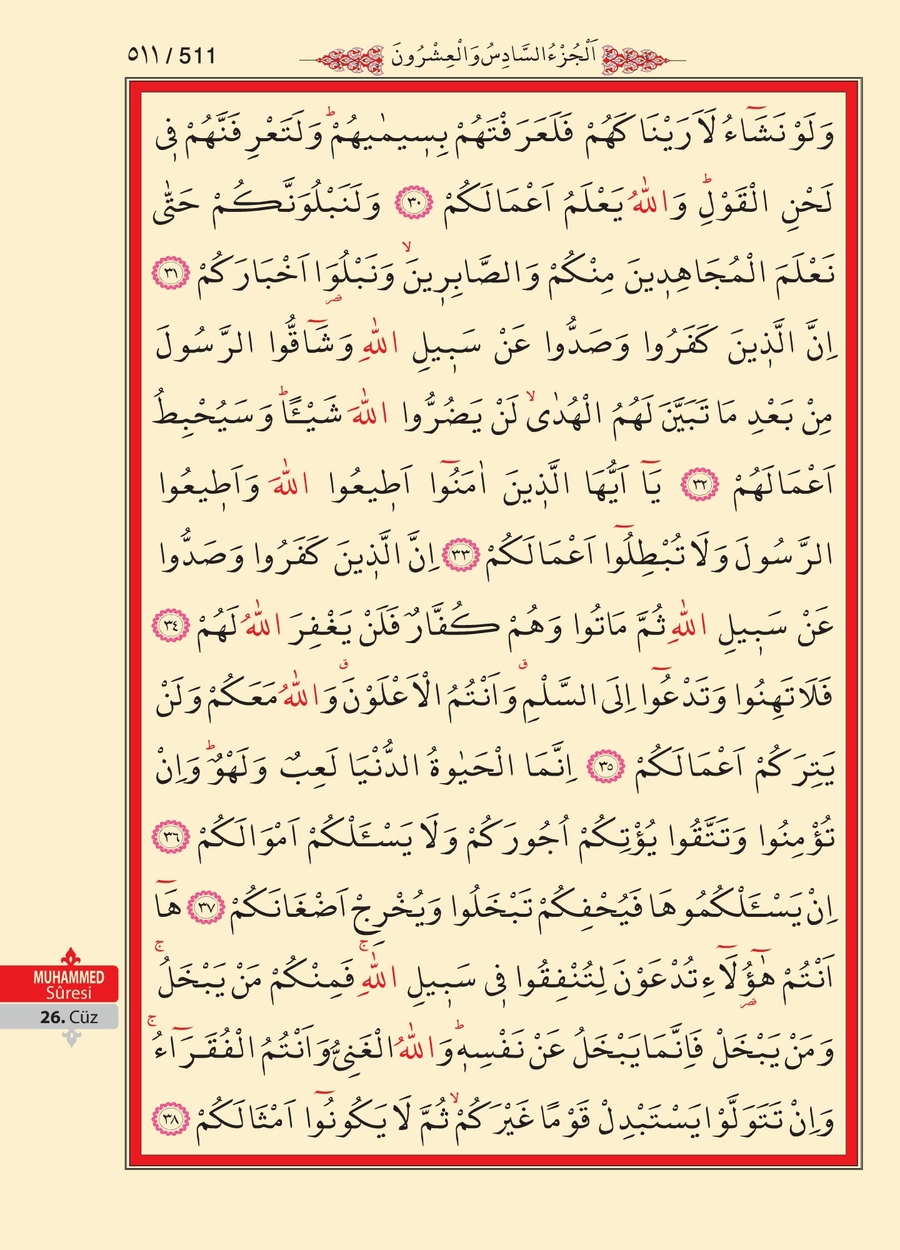 ٥١١ / 511
اَلْجُزْءُ السَّادِسُ وَالْعِشْرُونَ
وَلَوْ نَشَٓاءُ لَاَرَيْنَاكَهُمْ فَلَعَرَفْتَهُمْ بِسٖيمٰيهُمْؕ وَلَتَعْرِفَنَّهُمْ فٖي
لَحْنِ الْقَوْلِؕ وَاللّٰهُ يَعْلَمُ اَعْمَالَكُمْ ﴿٣٠﴾ وَلَنَبْلُوَنَّكُمْ حَتّٰى
نَعْلَمَ الْمُجَاهِدٖينَ مِنْكُمْ وَالصَّابِرٖينَۙ وَنَبْلُوَا اَخْبَارَكُمْ ﴿٣١﴾
اِنَّ الَّذٖينَ كَفَرُوا وَصَدُّوا عَنْ سَبٖيلِ اللّٰهِ وَشَٓاقُّوا الرَّسُولَ
مِنْ بَعْدِ مَا تَبَيَّنَ لَهُمُ الْهُدٰىۙ لَنْ يَضُرُّوا اللّٰهَ شَيْـًٔاؕ وَسَيُحْبِطُ
اَعْمَالَهُمْ ﴿٣٢﴾ يَٓا اَيُّهَا الَّذٖينَ اٰمَنُٓوا اَطٖيعُوا اللّٰهَ وَاَطٖيعُوا
الرَّسُولَ وَلَا تُبْطِلُٓوا اَعْمَالَكُمْ ﴿٣٣﴾ اِنَّ الَّذٖينَ كَفَرُوا وَصَدُّوا
عَنْ سَبٖيلِ اللّٰهِ ثُمَّ مَاتُوا وَهُمْ كُفَّارٌ فَلَنْ يَغْفِرَ اللّٰهُ لَهُمْ ﴿٣٤﴾
فَلَا تَهِنُوا وَتَدْعُٓوا اِلَى السَّلْمِࣗ وَاَنْتُمُ الْاَعْلَوْنَࣗ وَاللّٰهُ مَعَكُمْ وَلَنْ
يَتِرَكُمْ اَعْمَالَكُمْ ﴿٣٥﴾ اِنَّمَا الْحَيٰوةُ الدُّنْيَا لَعِبٌ وَلَهْوٌؕ وَاِنْ
تُؤْمِنُوا وَتَتَّقُوا يُؤْتِكُمْ اُجُورَكُمْ وَلَا يَسْـَٔلْكُمْ اَمْوَالَكُمْ ﴿٣٦﴾
اِنْ يَسْـَٔلْكُمُوهَا فَيُحْفِكُمْ تَبْخَلُوا وَيُخْرِجْ اَضْغَانَكُمْ ﴿٣٧﴾ هَٓا
اَنْتُمْ هٰٓؤُ۬لَٓاءِ تُدْعَوْنَ لِتُنْفِقُوا فٖي سَبٖيلِ اللّٰهِۚ فَمِنْكُمْ مَنْ يَبْخَلُۚ
وَمَنْ يَبْخَلْ فَاِنَّمَا يَبْخَلُ عَنْ نَفْسِهٖؕ وَاللّٰهُ الْغَنِيُّ وَاَنْتُمُ الْفُقَـرَٓاءُۚ
وَاِنْ تَتَوَلَّوْا يَسْتَبْدِلْ قَوْمًا غَيْرَكُمْۙ ثُمَّ لَا يَكُونُٓوا اَمْثَالَكُمْ ﴿٣٨﴾
MUHAMMED
Sûresi
26. Cüz